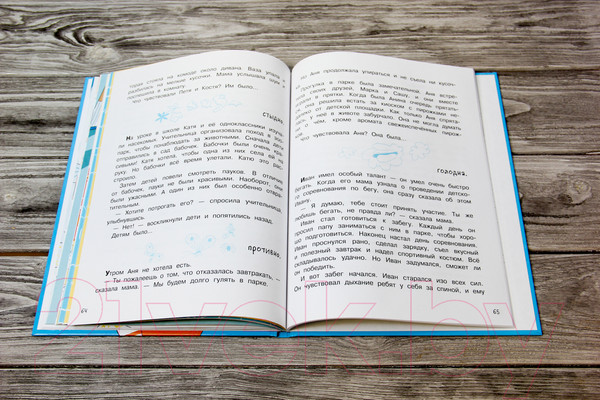 торая стояла на комоде около дивана. Ваза упала и
разбилась на мелкие кусочки. Мама услышала шум и
поспешила в комнату.
Что чувствовали Петя и Костя? Им было...
стыдно.
На уроке в школе Катя и её одноклассники изуча-
ли насекомых. Учительница организовала поход в
парк, чтобы понаблюдать за животными. Сначала дети
отправились в сад бабочек. Бабочки были очень кра-
сивыми! Катя хотела, чтобы одна из них села ей на
руку. Но бабочки всё время улетали. Катю это рас-
строило.
Затем детей повели смотреть пауков. В отличие
от бабочек, пауки не были красивыми. Наоборот, они
были ужасными. А один из них был особенно отвра-
тительным.
— Хотите потрогать его? — спросила учительница,
улыбнувшись.
— Нет! — воскликнули дети и попятились назад.
Детям было...
противно.
Утром Аня не хотела есть.
— Ты пожалеешь о том, что отказалась завтракать, —
сказала мама. — Мы будем долго гулять в парке.
64
Но Аня продолжала упираться и не съела ни кусоч-
Прогулка в парке была замечательной. Аня встре-
тила своих друзей, Марка и Сашу, и они вместе
играли в прятки. Когда была Анина очередь прятать-
ся, она решила встать за киоском с пирожками не-
далеко от детской площадки. Как только Аня спрята-
лась, у неё в животе заурчало. Она не могла думать
ни о чём, кроме аромата свежеиспечённых пирож-
ков.
Что чувствовала Аня? Она была...
голодна.
Иван имел особый талант — он умел очень быстро
бегать. Когда его мама узнала о проведении детско-
го соревнования по бегу, она сразу сказала об этом
Ивану.
— Я думаю, тебе стоит принять участие. Ты же
любишь бегать, не правда ли? — сказала мама.
Иван стал готовиться к забегу. Каждый день он
просил папу заниматься с ним в парке, чтобы хоро-
шо подготовиться. Наконец настал день соревнования.
Иван проснулся рано, сделал зарядку, съел вкусный
и полезный завтрак и надел спортивный костюм. Всё
складывалось удачно. Но Иван задумался, сможет ли
он победить.
И вот забег начался. Иван старался изо всех сил.
Он чувствовал дыхание ребят у себя за спиной, и ему
65